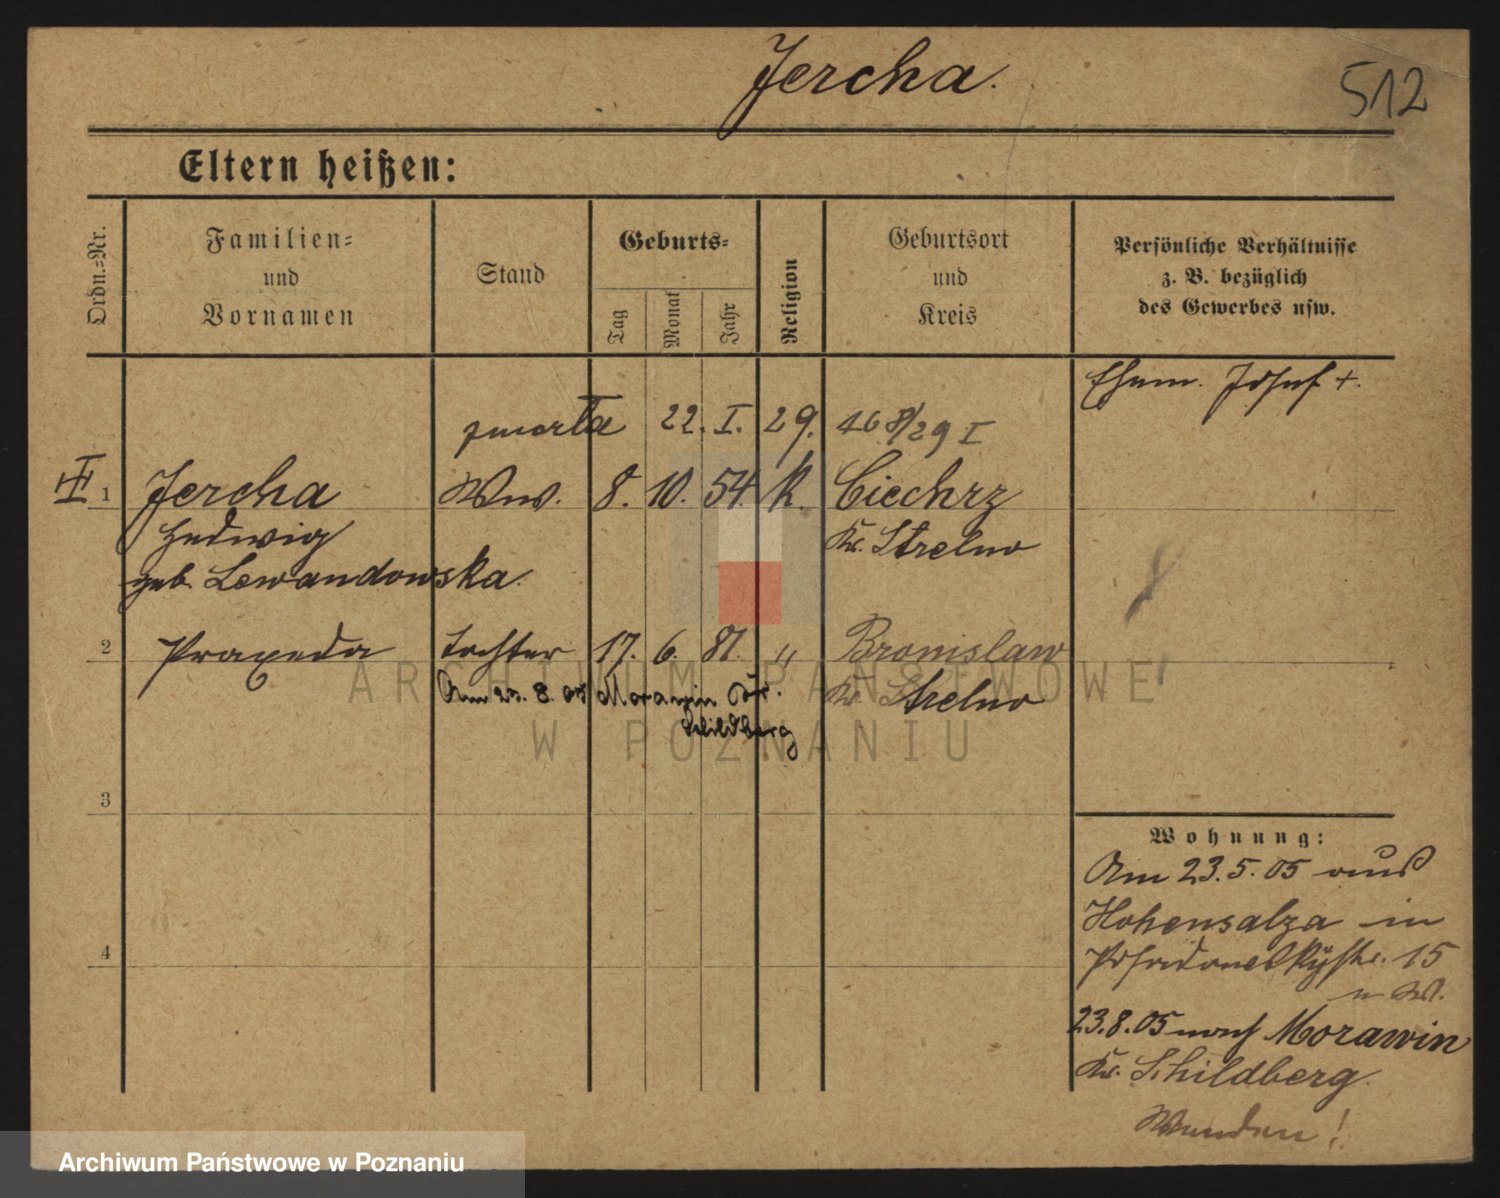 Jercha.
512
Eltern heißen:
Ordn.-Nr.
Familien-
und
Vornamen
Stand
Geburts-
Tag
Monat
Jahr
Religion
Geburtsort
und
Kreis
Persönliche Verhältnisse
z. B. bezüglich
des Gewerbes usw.
Ehem. Josef +.
zmarła 22. I. 29. 468/29 I
III 1 Jercha Ww. 8. 10. 54. k. Ciechrz
Hedwig Kr. Strelno
geb. Lewandowska.
2 Praxeda Tochter 17. 6. 81. " Bronislaw
Am 23. 8. 05 Morawin Kr. Kr. Strelno
Schildberg
3
4
Wohnung:
Am 23. 5. 05 aus
Hohensalza in
Posadowskystr. 15
23. 8. 05 nach Morawin
Kr. Schildberg.
Wenden!
ARCHIWUM PAŃSTWOWE
W POZNANIU
Archiwum Państwowe w Poznaniu